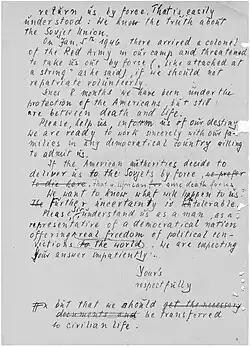 return us by force, that is easily
understood: We know the truth about
the Sovjet Union.
On Jan, 5th 1946 there arrived a colonel
of the Red Army in our camp and threatened
to take us out by force ( "like attached at
a string" as he said) if we should not
repatriate voluntary.
Since 8 months we have been under the
protection of the Americans, but still
are between death and life.
Please, help us inform us of our destiny
We are ready to work sincerely with our fa-
milies in any democratical country willing
to admit us.
If the American authorities decide to
deliver us to the Sovjets by force, we prefer
to die here, that is for us death
We want to know what will happen to us
Further uncertainty is intolerable.
Please, understand us as a man, as a
representative of a democratical nation
offering real freedom of political con-
victions to the world. We are expecting
your answer impatiently.
Your's
respectfully
but that we should get the necessary
documents and be transferred
to civilian life.